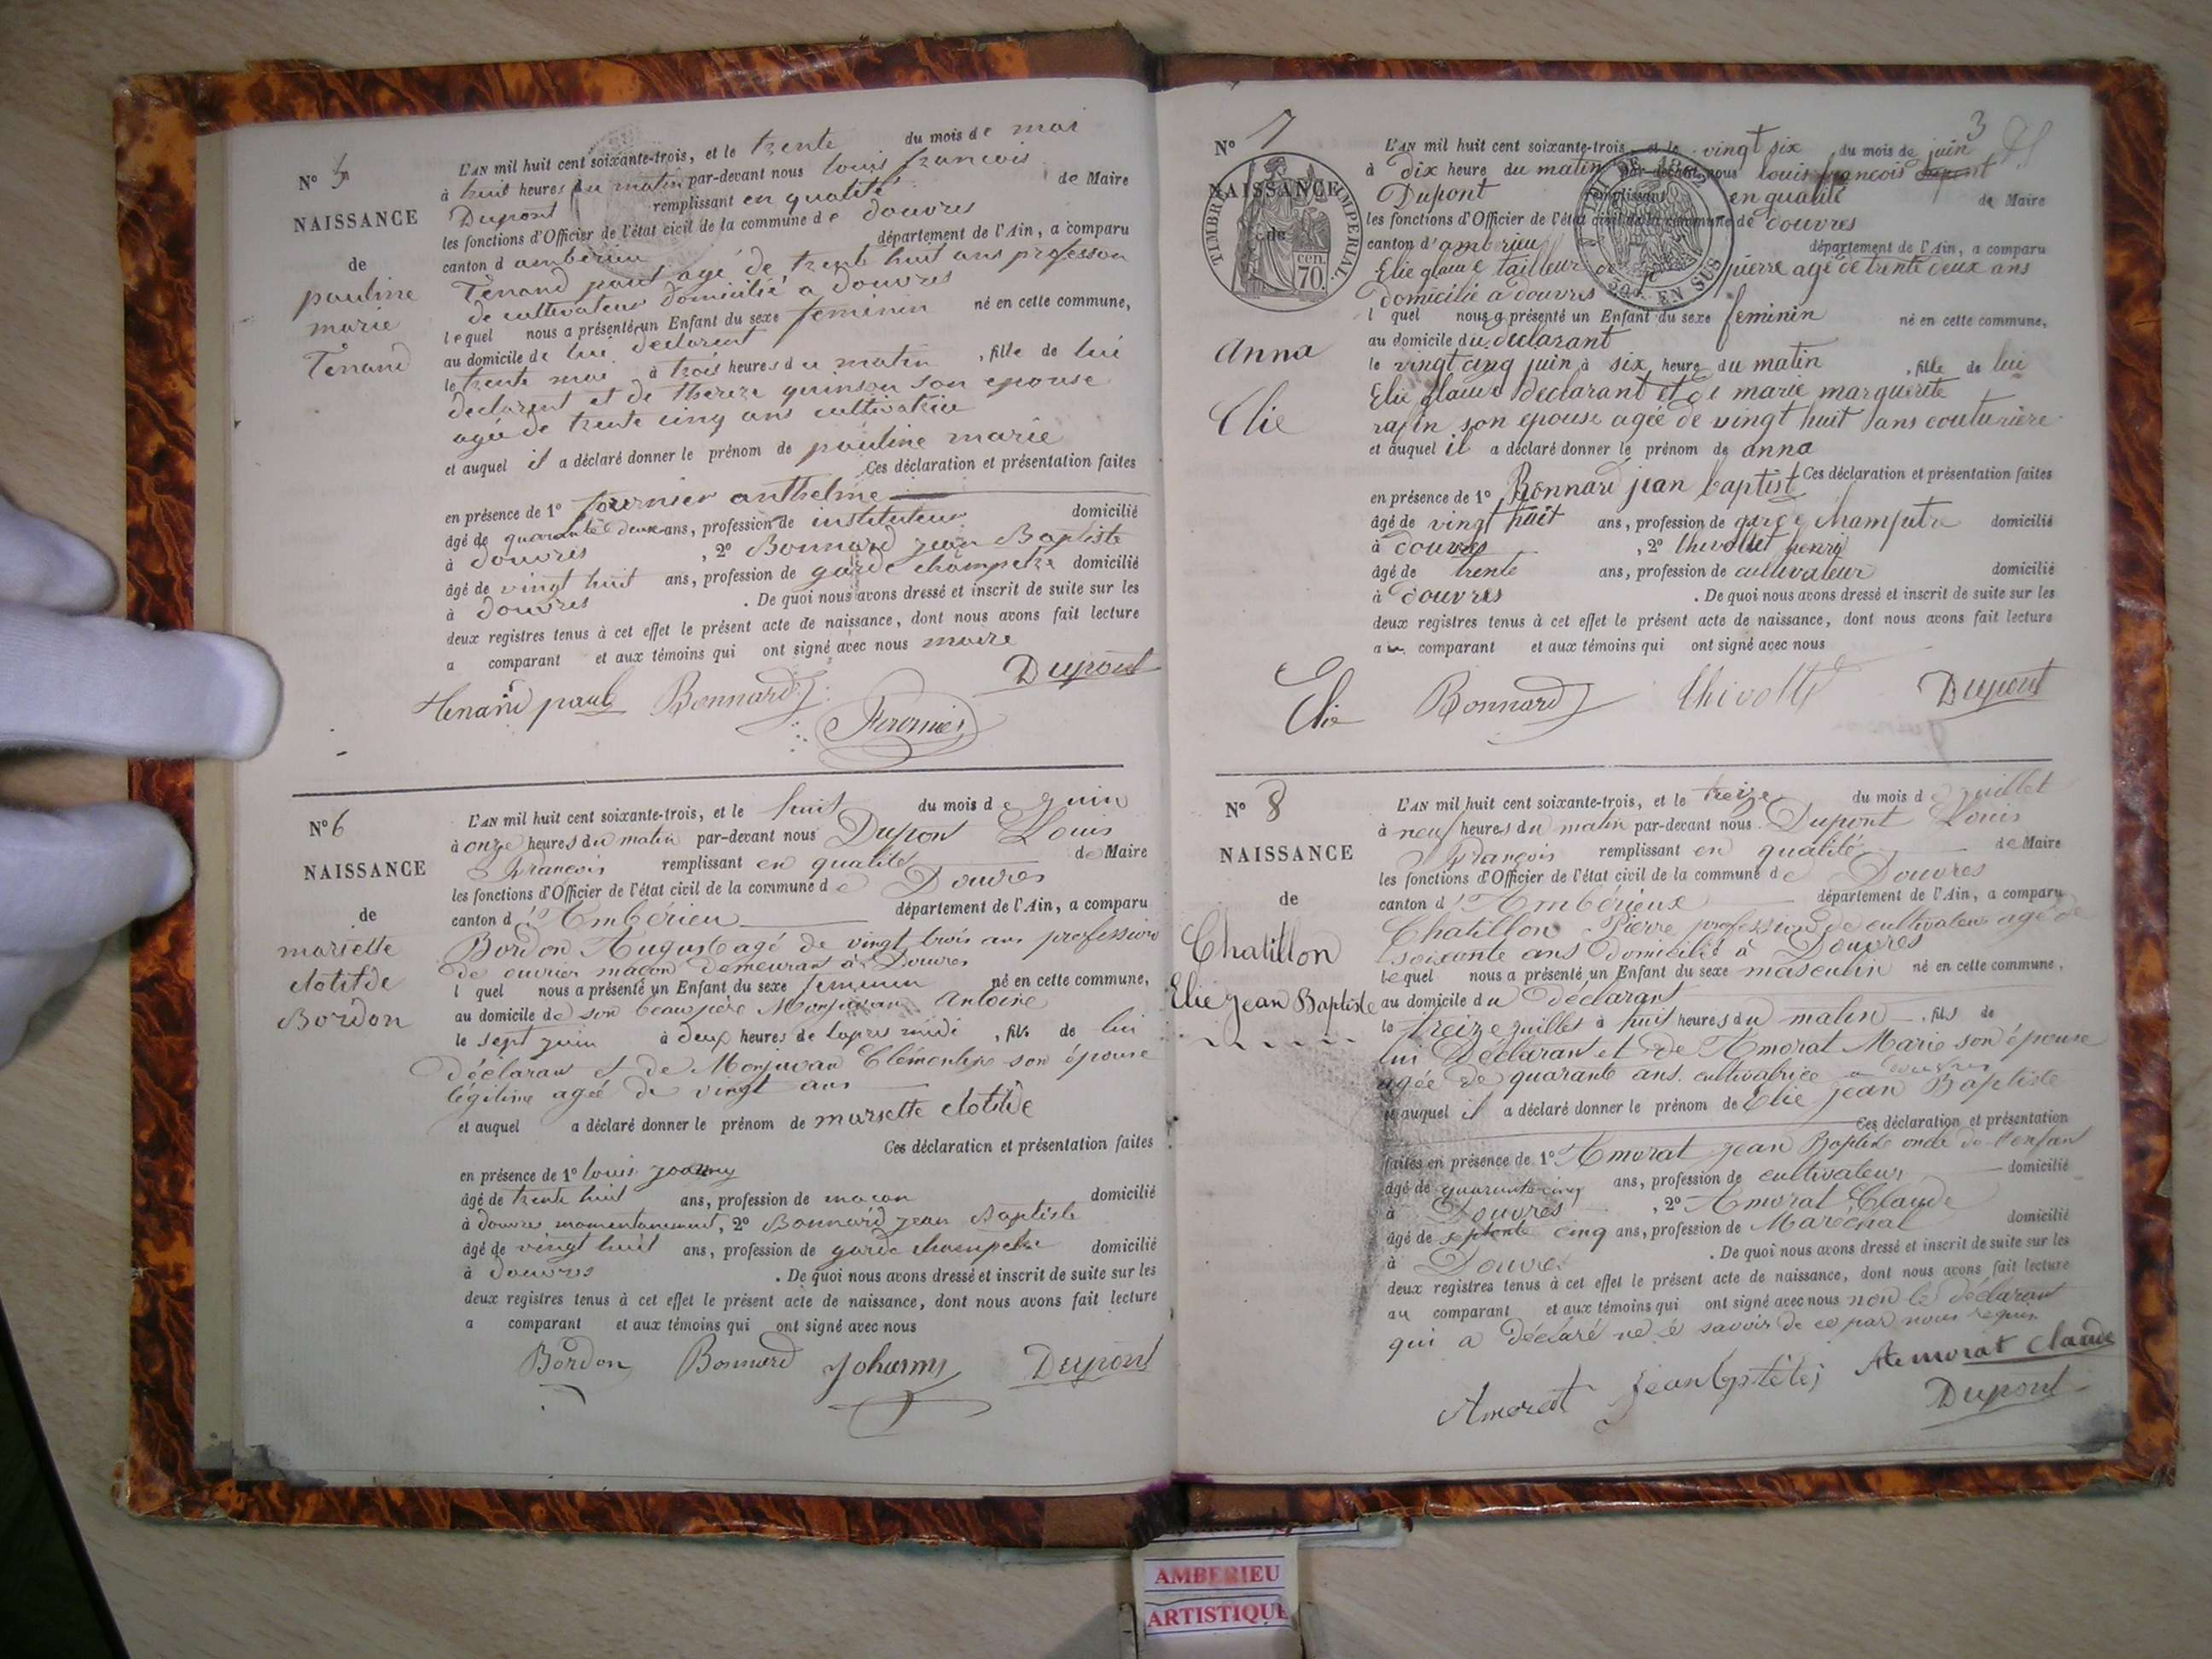 N° 5
NAISSANCE
de
pauline
marie
Tenand
L'AN mil huit cent soixante-trois, et le trente du mois de mai
à huit heures du matin par-devant nous louis francois
Dupont remplissant en qualité de Maire
les fonctions d'Officier de l'état civil de la commune de douvres
canton d amberieu département de l'Ain, a comparu
Tenand paul agé de trente huit ans profession
de cultivateur domicilié a douvres
lequel nous a présenté un Enfant du sexe feminin né en cette commune,
au domicile de lui declarent
le trente mai à trois heures du matin , fille de lui
declarent et de thereze quinson son epouse
agée de trente cinq ans cultivatrice
et auquel il a déclaré donner le prénom de pauline marie
Ces déclaration et présentation faites
en présence de 1° fournier anthelme
âgé de quarante deux ans, profession de instituteur domicilié
à douvres , 2° Bonnard jean Baptiste
âgé de vingt huit ans, profession de garde champetre domicilié
à douvres . De quoi nous avons dressé et inscrit de suite sur les
deux registres tenus à cet effet le présent acte de naissance, dont nous avons fait lecture
a comparant et aux témoins qui ont signé avec nous maire
Dupont
tenand paul Bonnard Fournier
N° 6
NAISSANCE
de
mariette
clotilde
Bordon
L'AN mil huit cent soixante-trois, et le huit du mois de juin
à onze heures du matin par-devant nous Dupont Louis
François remplissant en qualité de Maire
les fonctions d'Officier de l'état civil de la commune de Douvres
canton d'Ambérieu département de l'Ain, a comparu
Bordon Auguste agé de vingt trois ans profession
de ouvrier maçon demeurant à Douvres
l quel nous a présenté un Enfant du sexe feminin né en cette commune,
au domicile de son beau père Monjuvan Antoine
le sept juin à deux heures de lapres midi , fille de lui
déclarant et de Monjuvan Clémentine son épouse
légitime agée de vingt ans
et auquel a déclaré donner le prénom de mariette clotilde
Ces déclaration et présentation faites
en présence de 1° louis joanny
âgé de trente huit ans, profession de maçon domicilié
à douvres momentanement, 2° Bonnard jean Baptiste
âgé de vingt huit ans, profession de garde champetre domicilié
à douvres . De quoi nous avons dressé et inscrit de suite sur les
deux registres tenus à cet effet le présent acte de naissance, dont nous avons fait lecture
a comparant et aux témoins qui ont signé avec nous
Bordon Bonnard Johanny Dupont
3
N° 7
NAISSANCE
de
TIMBRE IMPERIAL
70 cen.
50c. EN SUS
anna
Elie
L'AN mil huit cent soixante-trois, et le vingt six du mois de juin
à dix heure du matin par-devant nous louis francois dupont
Dupont remplissant en qualité de Maire
les fonctions d'Officier de l'état civil de la commune de douvres
canton d'amberieu département de l'Ain, a comparu
Elie glaude tailleur de pierre agé de trente deux ans
domicilié a douvres
l quel nous a présenté un Enfant du sexe feminin né en cette commune,
au domicile du declarant
le vingt cinq juin à six heure du matin , fille de lui
Elie glaude declarant et de marie marguerite
rafin son epouse agée de vingt huit ans couturière
et auquel il a déclaré donner le prénom de anna
Ces déclaration et présentation faites
en présence de 1° Bonnard jean baptist
âgé de vingt huit ans, profession de garde champetre domicilié
à douvres , 2° thevollet henri
âgé de trente ans, profession de cultivateur domicilié
à douvres . De quoi nous avons dressé et inscrit de suite sur les
deux registres tenus à cet effet le présent acte de naissance, dont nous avons fait lecture
au comparant et aux témoins qui ont signé avec nous
Elie Bonnard Dupont
N° 8
NAISSANCE
de
Chatillon
Elie jean Baptiste
L'AN mil huit cent soixante-trois, et le treize du mois de juillet
à neuf heures du matin par-devant nous Dupont Louis
François remplissant en qualité de Maire
les fonctions d'Officier de l'état civil de la commune de Douvres
canton d'Ambérieux département de l'Ain, a comparu
Chatillon Pierre profession de cultivateur agé de
soixante ans domicilié à Douvres
lequel nous a présenté un Enfant du sexe masculin né en cette commune,
au domicile du déclarant
le treize juillet à huit heures du matin , fils de
lui Déclarant et de Amorat Marie son épouse
agée de quarante ans. cultivatrice a douvres
et auquel il a déclaré donner le prénom de Elie jean Baptiste
Ces déclaration et présentation
faites en présence de 1° Amorat jean Baptiste oncle de l'enfant
âgé de quarante cinq ans, profession de cultivateur domicilié
à Douvres , 2° Amorat Claude
âgé de septente cinq ans, profession de Maréchal domicilié
à Douvres . De quoi nous avons dressé et inscrit de suite sur les
deux registres tenus à cet effet le présent acte de naissance, dont nous avons fait lecture
au comparant et aux témoins qui ont signé avec nous non le déclarant
qui a déclaré ne le savoir de ce par nous requis
Amorat jean Aemorat claude
Dupont
AMBERIEU
ARTISTIQUE